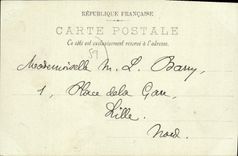 RÉPUBLIQUE FRANÇAISE
CARTE POSTALE
Ce côté est exclusivement réservé à l'adresse.
59
Mademoiselle M. L. Barry,
1, Place de la Gare,
Lille.
Nord.